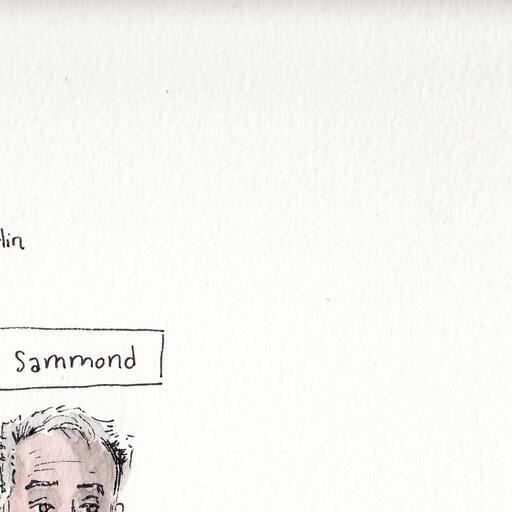 lin
Sammond